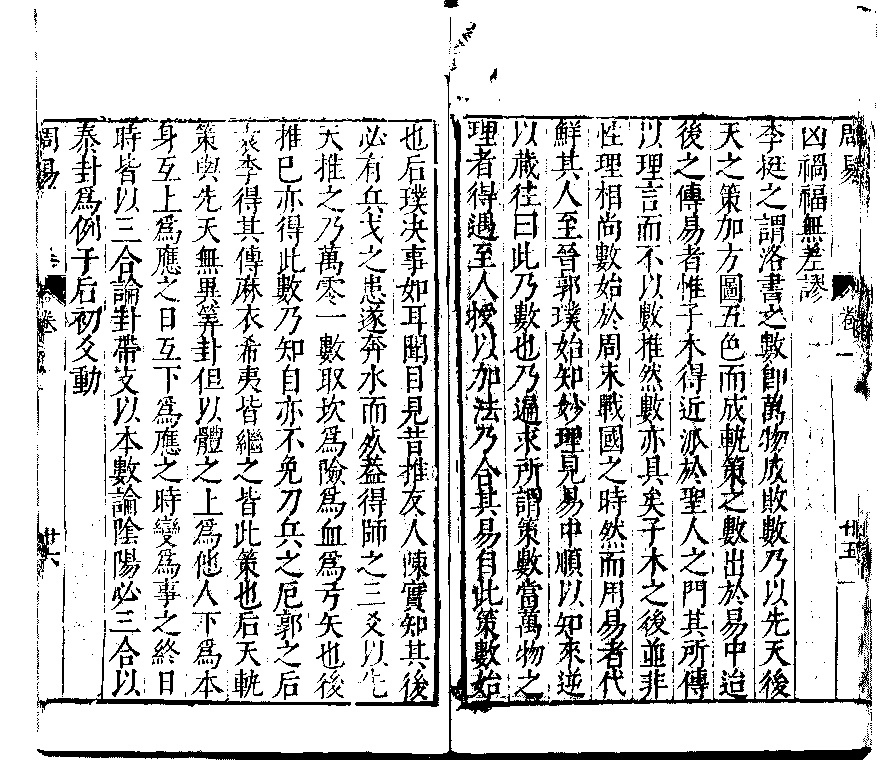 周易 卷一 廿五
凶禍福無差謬
李挺之謂洛書之數卽萬物成敗數乃以先天後
天之策加方圖五色而成軌策之數出於易中迨
後之傳易者惟子木得近派於聖人之門其所傳
以理言而不以數推然數亦具矣子木之後並非
性理相尚數始於周末戰國之時然而用易者代
鮮其人至晉郭璞始知妙理見易中順以知來逆
以藏往曰此乃數也乃遍求所謂策數當萬物之
理者得遇至人授以加法乃合其易自此策數始
也后璞決事如耳聞目見昔推友人陳實知其後
必有兵戈之患遂奔水而處葢得師之三爻以先
天推之乃萬零一數取坎爲險爲血爲弓矢也後
推巳亦得此數乃知自亦不免刀兵之厄郭之后
袁李得其傳麻衣希夷皆繼之皆此策也后天軌
策與先天無異筭卦但以體之上爲他人下爲本
身互上爲應之日互下爲應之時變爲事之終日
時皆以三合論卦帶支以本數論陰陽必三合以
泰卦爲例子后初爻動
周易 卷 廿六